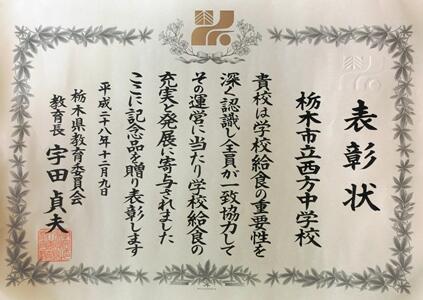 表彰状
栃木市立西方中学校
貴校は学校給食の重要性を
深く認識し全員が一致協力して
その運営に当たり学校給食の
充実発展に寄与されました
ここに記念品を贈り表彰します
平成二十八年十二月九日
栃木県教育委員会
教育長 宇田貞夫